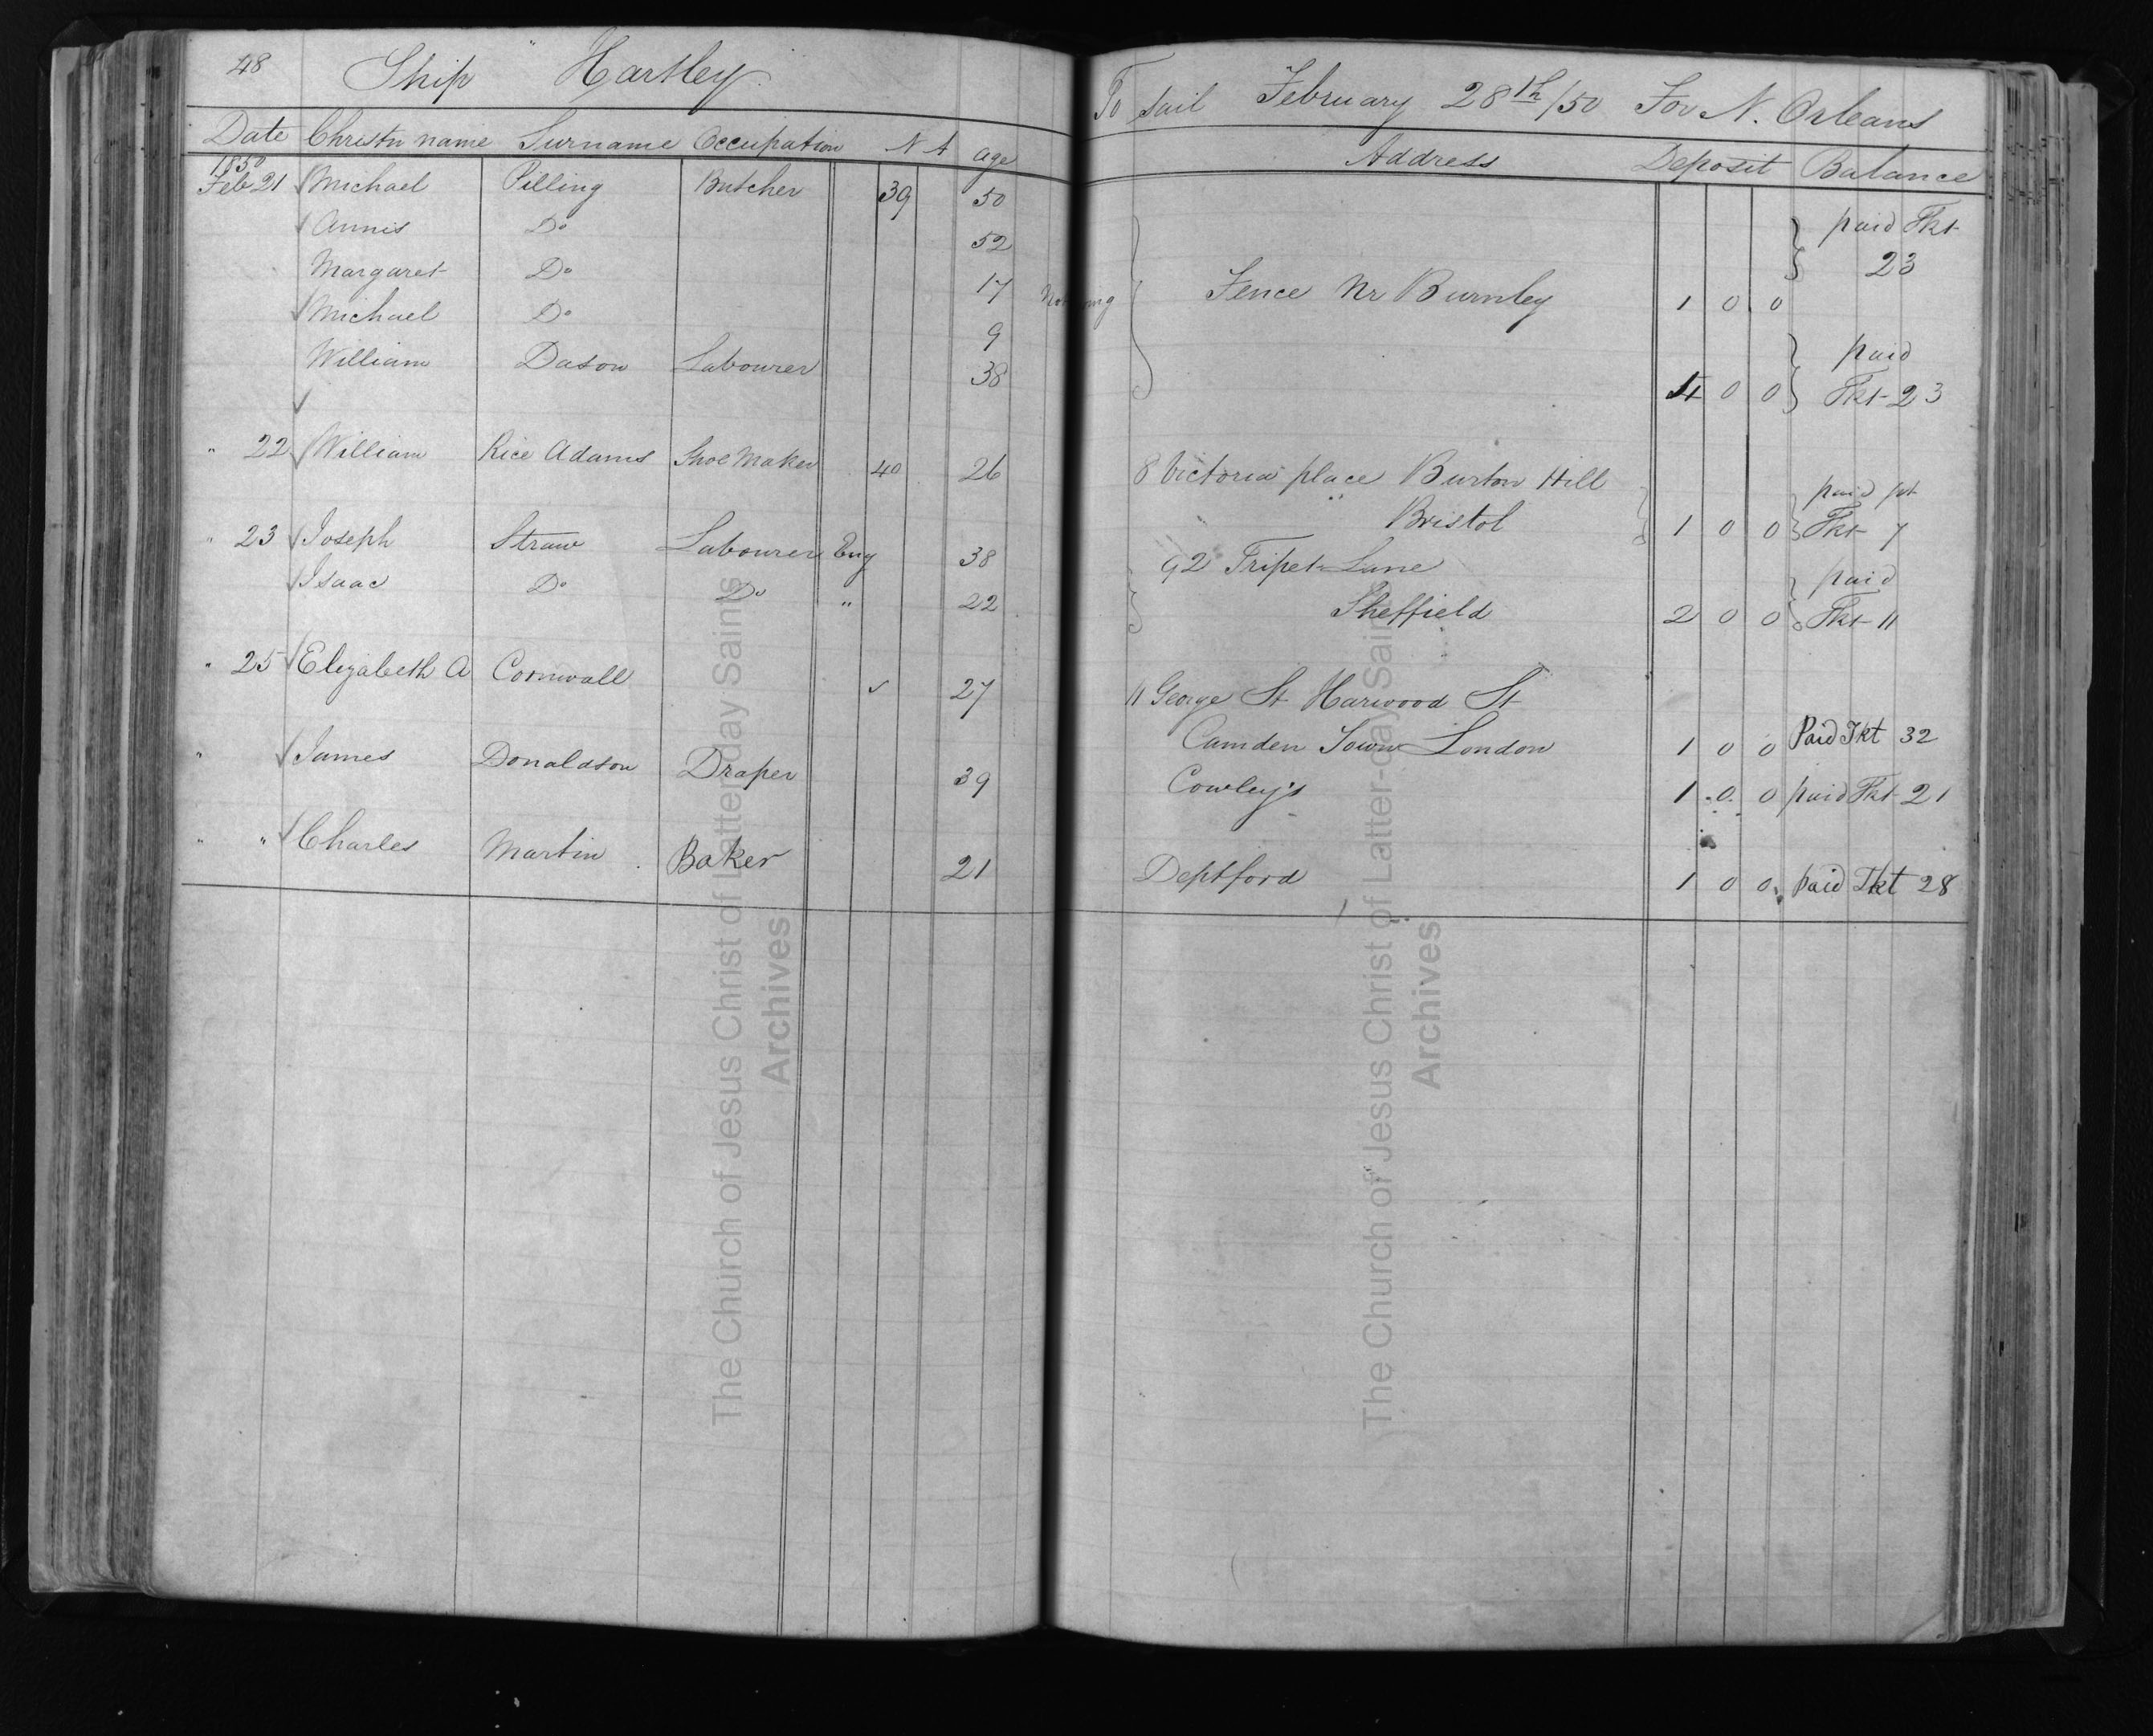 48 Ship " Hartley To sail February 28th/50 For N. Orleans
Date Christn name Surname Occupation N A age Address Deposit Balance
1850
Feb 21 Michael Pilling Butcher 39 50 paid Tkt
Annis Do 52 23
Margaret Do 17 Not going Fence Nr Burnley 1 0 0
Michael Do 9 paid
William Dason Labourer 38 4 0 0 Tkt 23
" 22 William Rice Adams Shoe Maker 40 26 8 Victoria place Burton Hill paid
Bristol 1 0 0 Tkt 7
" 23 Joseph Straw Labourer Eng 38 92 Tripet Lane paid
Isaac Do Do " 22 Sheffield 2 0 0 Tkt 11
" 25 Elizabeth A Cornwall 27 11 George St Harwood St
Camden Town London 1 0 0 Paid Tkt 32
" James Donaldson Draper 39 Cowley's 1 0 0 paid Tkt 21
" " Charles Martin Baker 21 Deptford 1 0 0 paid Tkt 28
The Church of Jesus Christ of Latter-day Saints
Archives
The Church of Jesus Christ of Latter-day Saints
Archives